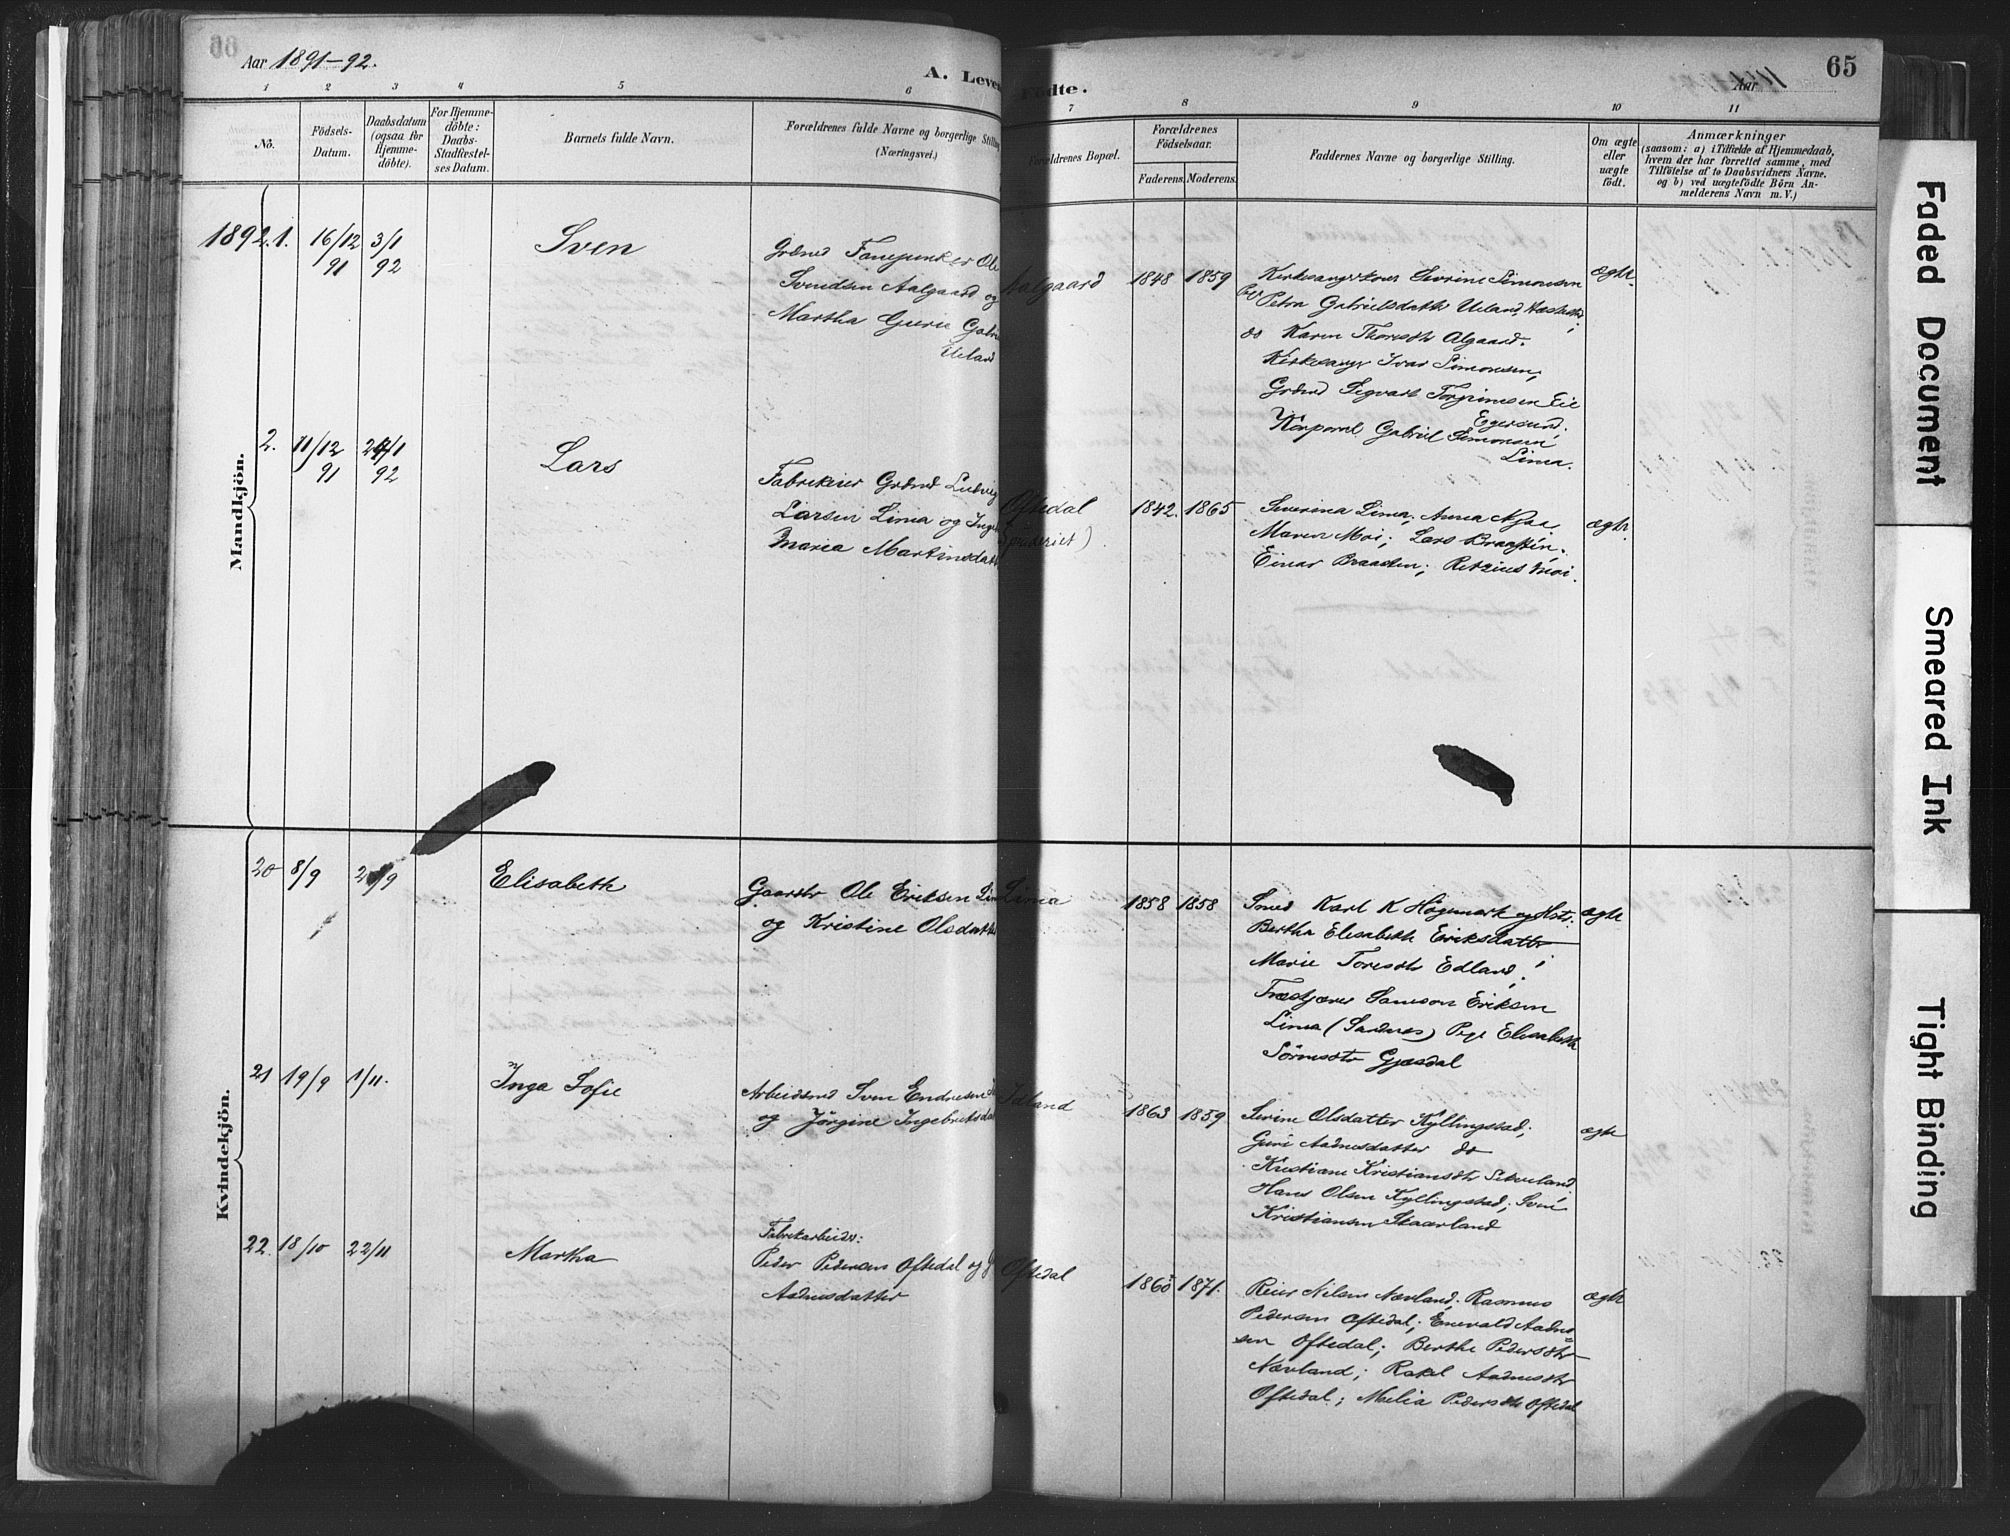 Aar 1891-92.
A. Leven
Födte.
65
Aar
1 2 3 4 5 6 7 8 9 10 11
No.
Födsels-
Datum.
Daabsdatum
(ogsaa for
Hjemme-
döbte).
For Hjemme-
döbte:
Daabs-
Stadfæstel-
ses Datum.
Barnets fulde Navn.
Forældrenes fulde Navne og borgerlige Stilling
(Næringsvei.)
Forældrenes Bopæl.
Forældrenes
Födselsaar.
Faderens. Moderens.
Faddernes Navne og borgerlige Stilling.
Om ægte
eller
uægte
födt.
Anmærkninger
(saasom: a) i Tilfælde af Hjemmedaab,
hvem der har forrettet samme, med
Tilföielse af to Daabsvidners Navne.
og b) ved uægtefödte Börn An-
melderens Navn m. V.)
Mandkjön.
1892. 1. 16/12 91 3/1 92
Sven
Grdmd Ole
Svendsen Aalgaard og
Martha Gurie Gabri
Ueland
Aalgaard
1848 1859
Kirkesangerkone Serine Simonsen
Pige Petra Gabrielsdatter Ueland
do Karen Thoresdtr Algaard.
Kirkesanger Ivar Simonsen,
Grdmd Segvart Torgrimsen Eie
Egersund.
Korporal Gabriel Simonsen
Lima.
ægte
2. 11/12 91 24/1 92
Lars
Fabrikeier Grdmd Ludvig
Larsen Lima og Inge
Maria Martinsdatt
Oftedal
1842. 1865
Severina Lima, Anna Njaa
Maren Moi; Lars Braasten;
Einar Braasten; Retzius Moi.
ægte.
Kvindekjön.
20 8/9 /9
Elisabeth
Gaardbr Ole Eriksen Lim
og Kristine Olsdatter
Lima
1858 1858
Smed Karl K Högemark og Hstr.
Bertha Elisabeth Eriksdatter
Marie Toresdtr Edland;
Træskjærer Samson Eriksen
Lima (Sandnes) Pige Elisabeth
Sörensdtr Gjæsdal
ægte
21 19/9 1/11.
Inga Sofie
Arbeidsmd Sven Endresen
og Jörgine Ingebretsdat
Idland
1863 1859
Serine Olsdatter Kyllingstad;
Guri Aadnesdatter do
Kristiane Kristiansdtr Sekveland
Hans Olsen Kyllingstad; Sven
Kristiansen Skaarland
ægte
22. 18/10 22/11
Martha
Fabrikarbeider:
Peder Pedersen Oftedal og
Aadnesdatter
Oftedal
1865 1871.
Reier Nilsen Nævland, Rasmus
Pedersen Oftedal; Enevald Aadne-
sen Oftedal; Berthe Pedersdtr
Nævland; Rakel Aadnesdtr
Oftedal; Malia Pedersdtr Oftedal
ægte
Faded Document
Smeared Ink
Tight Binding